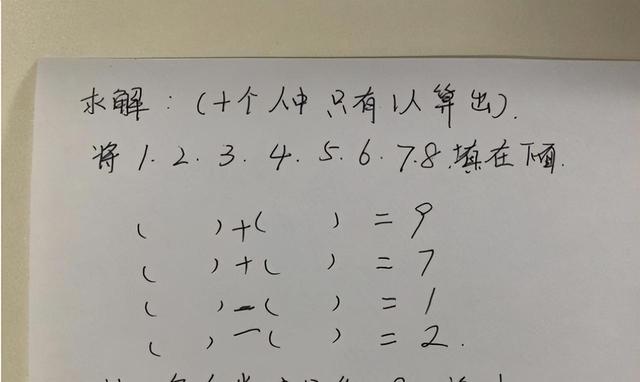 求解：(十个人中只有1人算出).
将1.2.3.4.5.6.7.8.填在下面.
(   )+(   )=9
(   )+(   )=7
(   )-(   )=1
(   )-(   )=2.